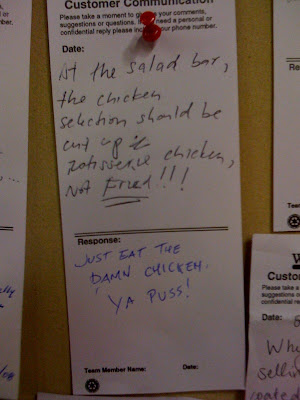 Customer Communication
Please take a moment to give us your comments,
suggestions or questions. If you need a personal or
confidential reply please include your phone number.
Date:
At the salad bar,
the chicken
selection should be
cut up
rotisserie chicken,
not Fried!!!
Response:
JUST EAT THE
DAMN CHICKEN.
YA PUSS!
Team Member Name: Date:
W
Custo
Please take
suggestions o
confidential re
Date:
Why
selli